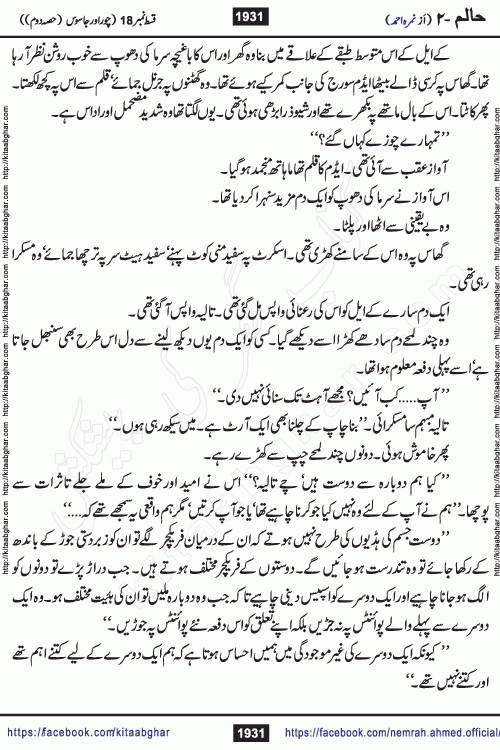 حالم -۲ (از نمرہ احمد) 1931 قسط نمبر 18 (چور اور جاسوس (حصہ دوم))
کے ایل کے اس متوسط طبقے کے علاقے میں بنا وہ گھر اور اس کا باغیچہ سرما کی دھوپ سے خوب روشن نظر آ رہا
تھا۔ گھاس پہ کرسی ڈالے بیٹھا ایڈم سورج کی جانب کمر کیے ہوئے تھا۔ وہ گھٹنوں پہ جرنل جمائے ‘ قلم سے اس پہ کچھ لکھتا۔
پھر کاٹتا۔ اس کے بال ماتھے پہ بکھرے تھے اور شیو ذرا بڑھی ہوئی تھی۔ یوں لگتا تھا وہ شدید مضمحل اور اداس ہے۔
’’تمہارے چوزے کہاں گئے؟‘‘
آواز عقب سے آئی تھی۔ ایڈم کا قلم تھاما ہاتھ منجمد ہو گیا۔
اس آواز نے سرما کی دھوپ کو ایک دم مزید سنہرا کر دیا تھا۔
وہ بے یقینی سے اٹھا اور پلٹا۔
گھاس پہ وہ اس کے سامنے کھڑی تھی۔ اسکرٹ پہ سفید منی کوٹ پہنے ‘ سفید ہیٹ سر پہ ترچھا جمائے ‘ وہ مسکرا
رہی تھی۔
ایک دم سارے کے ایل کو اس کی رعنائی واپس مل گئی تھی۔ تالیہ واپس آ گئی تھی۔
وہ چند لمحے دم سادھے کھڑا اسے دیکھے گیا۔ کسی کو ایک دم یوں دیکھ لینے سے دل اس طرح بھی سنبھل جاتا
ہے ‘ اسے پہلی دفعہ معلوم ہوا تھا۔
’’آپ.....کب آئیں؟ مجھے آہٹ تک سنائی نہیں دی۔‘‘
تالیہ مبہم سا مسکرائی۔ ’’بنا چاپ کے چلنا بھی ایک آرٹ ہے۔ میں سیکھ رہی ہوں۔‘‘
پھر خاموش ہوئی۔ دونوں چند لمحے چپ سے کھڑے رہے۔
’’کیا ہم دوبارہ سے دوست ہیں ‘ چے تالیہ؟‘‘ اس نے امید اور خوف کے ملے جلے تاثرات سے
پوچھا۔ ’’ہم نے آپ کے لئے وہ نہیں کیا جو کرنا چاہیے تھا ‘ یا جو آپ کرتیں ‘ مگر ہم واقعی یہ سمجھے تھے کہ....‘‘
’’دوست جسم کی ہڈیوں کی طرح نہیں ہوتے کہ ان کے درمیان فریکچر لگے تو ان کو زبردستی جوڑ کے باندھ
کے رکھا جائے تو وہ تندرست ہو جائیں گے۔ دوستوں کے فریکچر مختلف ہوتے ہیں۔ جب دراڑ پڑے تو دونوں کو
الگ ہو جانا چاہیے اور ایک دوسرے کو اسپیس دینی چاہیے تا کہ جب وہ دوبارہ ملیں تو ان کی ہیئت مختلف ہو۔ وہ ایک
دوسرے سے پہلے والے پوائنٹس پہ نہ جڑیں بلکہ اپنے تعلق کو اس دفعہ نئے پوائنٹس پہ جوڑیں۔‘‘
’’کیونکہ ایک دوسرے کی غیر موجودگی میں ہمیں احساس ہوتا ہے کہ ہم ایک دوسرے کے لیے کتنے اہم تھے
اور کتنے نہیں تھے۔‘‘
https://facebook.com/kitaabghar 1931 https://facebook.com/nemrah.ahmed.official/
http://kitaabghar.com http://kitaabghar.com http://kitaabghar.com http://kitaabghar.com
http://kitaabghar.com http://kitaabghar.com http://kitaabghar.com http://kitaabghar.com